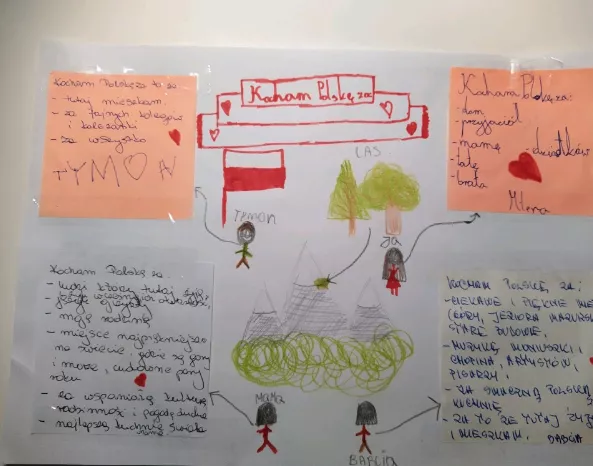 Kocham Polskę za:
Kocham Polskę za to że
- tutaj mieszkam
- za fajnych kolegów
i koleżanki
- za wszystko
TYMON
Kocham Polskę za:
- dom
- przyjaciół
- mamę
- dziadków
- tatę
- brata
Milena
LAS
TYMON
ja
Kocham Polskę za
- ludzi którzy tutaj żyją,
- moją rodzinę
- miejsce najpiękniejsze
na świecie, gdzie są góry
i morze, cudowne pory
roku
- za wspaniałą kulturę
rodzinność i pogodę ducha
- najlepszą kuchnię świata
MAMA
BABCIA
KOCHAM POLSKĘ ZA:
- CIEKAWE I PIĘKNE
(GÓRY, JEZIORA
STARE BUDOWLE,
- MUZYKĘ MONIUSZKI
CHOPINA, ARTYSTÓW
PISARZY
- ZA SMACZNĄ POLSKĄ
KUCHNIĘ
- ZA TO ŻE TUTAJ
I MIESZKAM. BABCIA